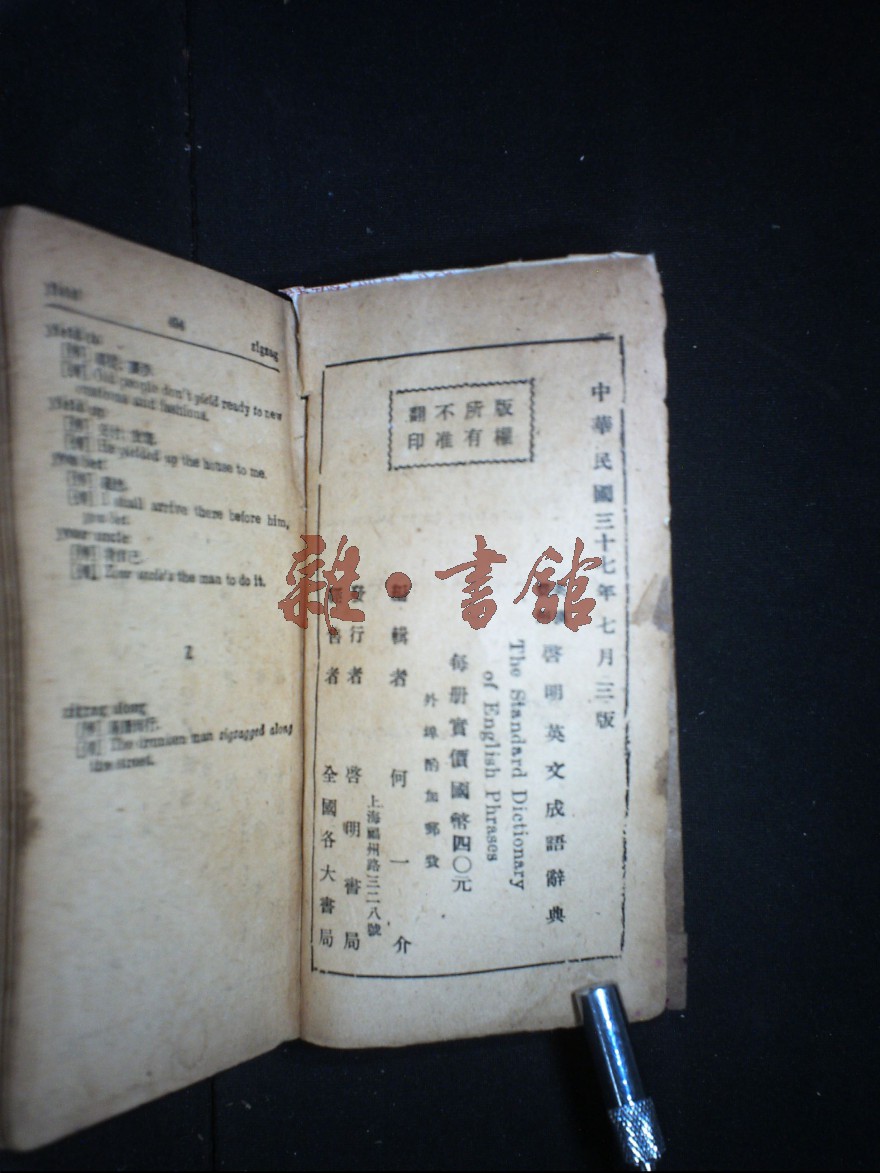 zigzag
Old people don't yield ready to new
customs and fashions.
yield up
He yielded up the house to me.
you bet
I shall arrive there before him,
you bet.
your uncle
Your uncle's the man to do it.
Z
zigzag along
man zigzagged along
the street.
中華民國三十七年七月三版
版權所有
不准翻印
啓明英文成語辭典
The Standard Dictionary
of English Phrases
每册實價國幣四〇元
外埠酌加郵費
編輯者 何一介
發行者 啓明書局
上海福州路三二八號
經售者 全國各大書局
雜·書館